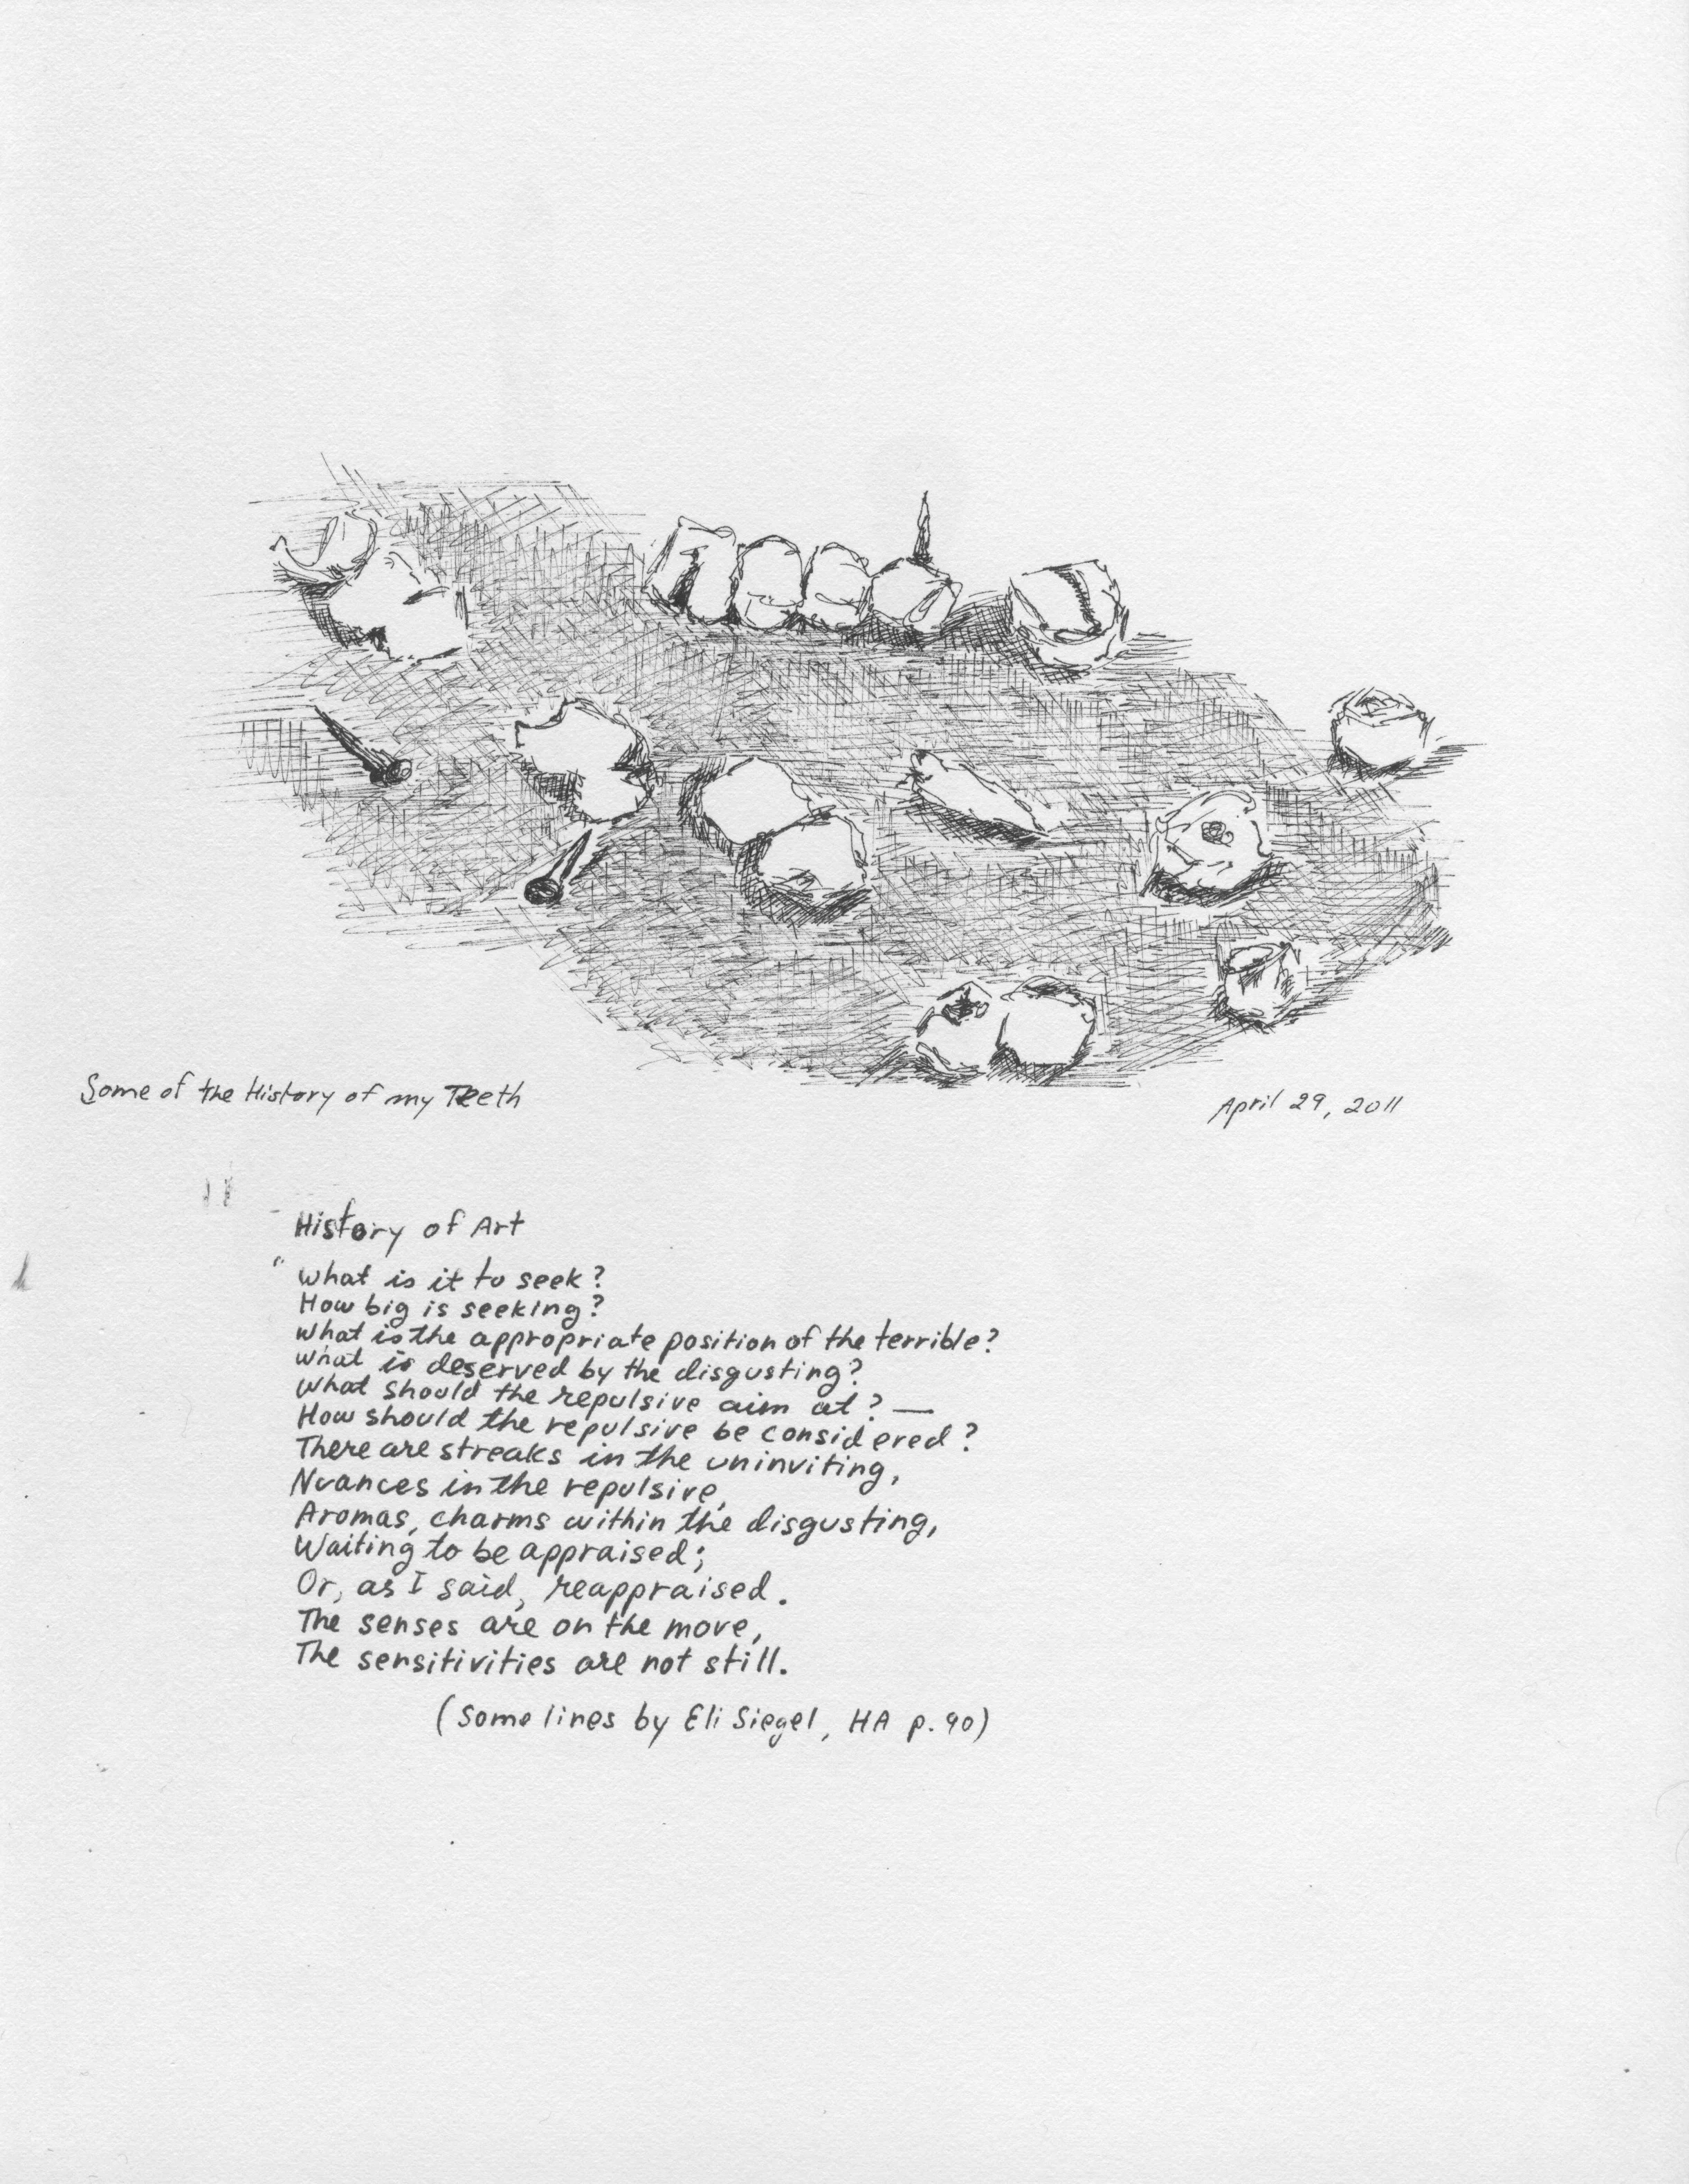 Some of the History of my Teeth
April 29, 2011
History of Art
"What is it to seek?
How big is seeking?
What is the appropriate position of the terrible?
What is deserved by the disgusting?
What should the repulsive aim at? —
How should the repulsive be considered?
There are streaks in the uninviting,
Nuances in the repulsive,
Aromas, charms within the disgusting,
Waiting to be appraised;
Or, as I said, reappraised.
The senses are on the move,
The sensitivities are not still.
(Some lines by Eli Siegel, HA p. 90)